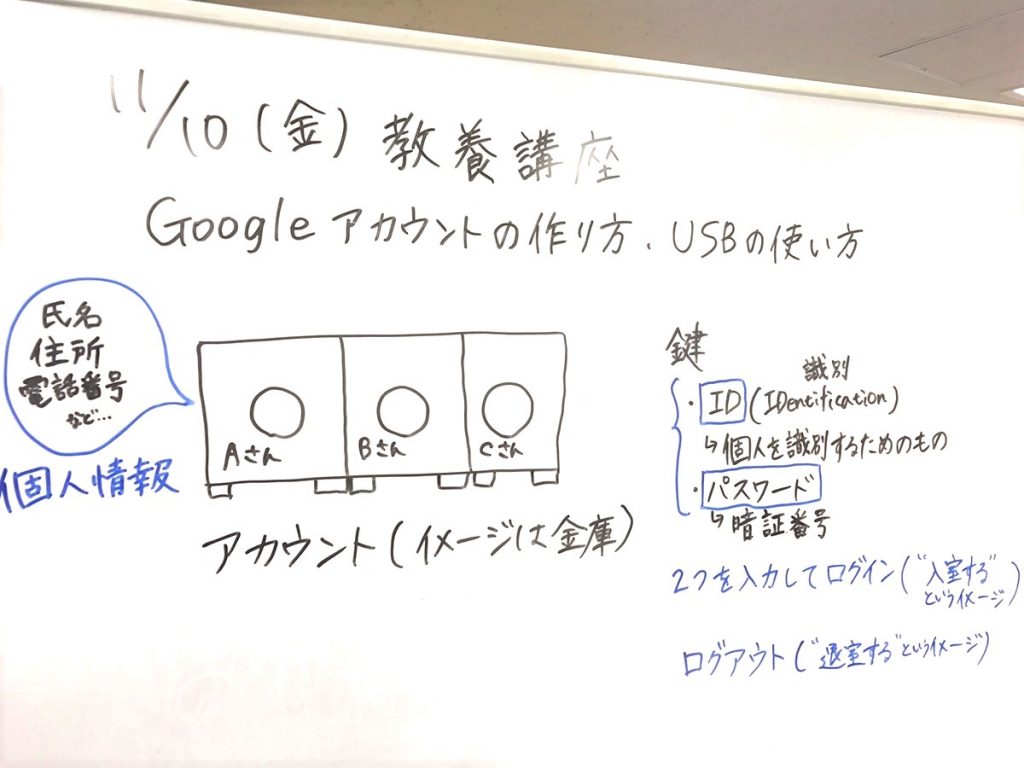 11/10(金)教養講座
Googleアカウントの作り方、USBの使い方
氏名
住所
電話番号
など…
個人情報
Aさん
Bさん
Cさん
アカウント(イメージは金庫)
鍵
識別
・ID(IDentification)
↳個人を識別するためのもの
・パスワード
↳暗証番号
2つを入力してログイン("入室する"
というイメージ)
ログアウト("退室する"というイメージ)